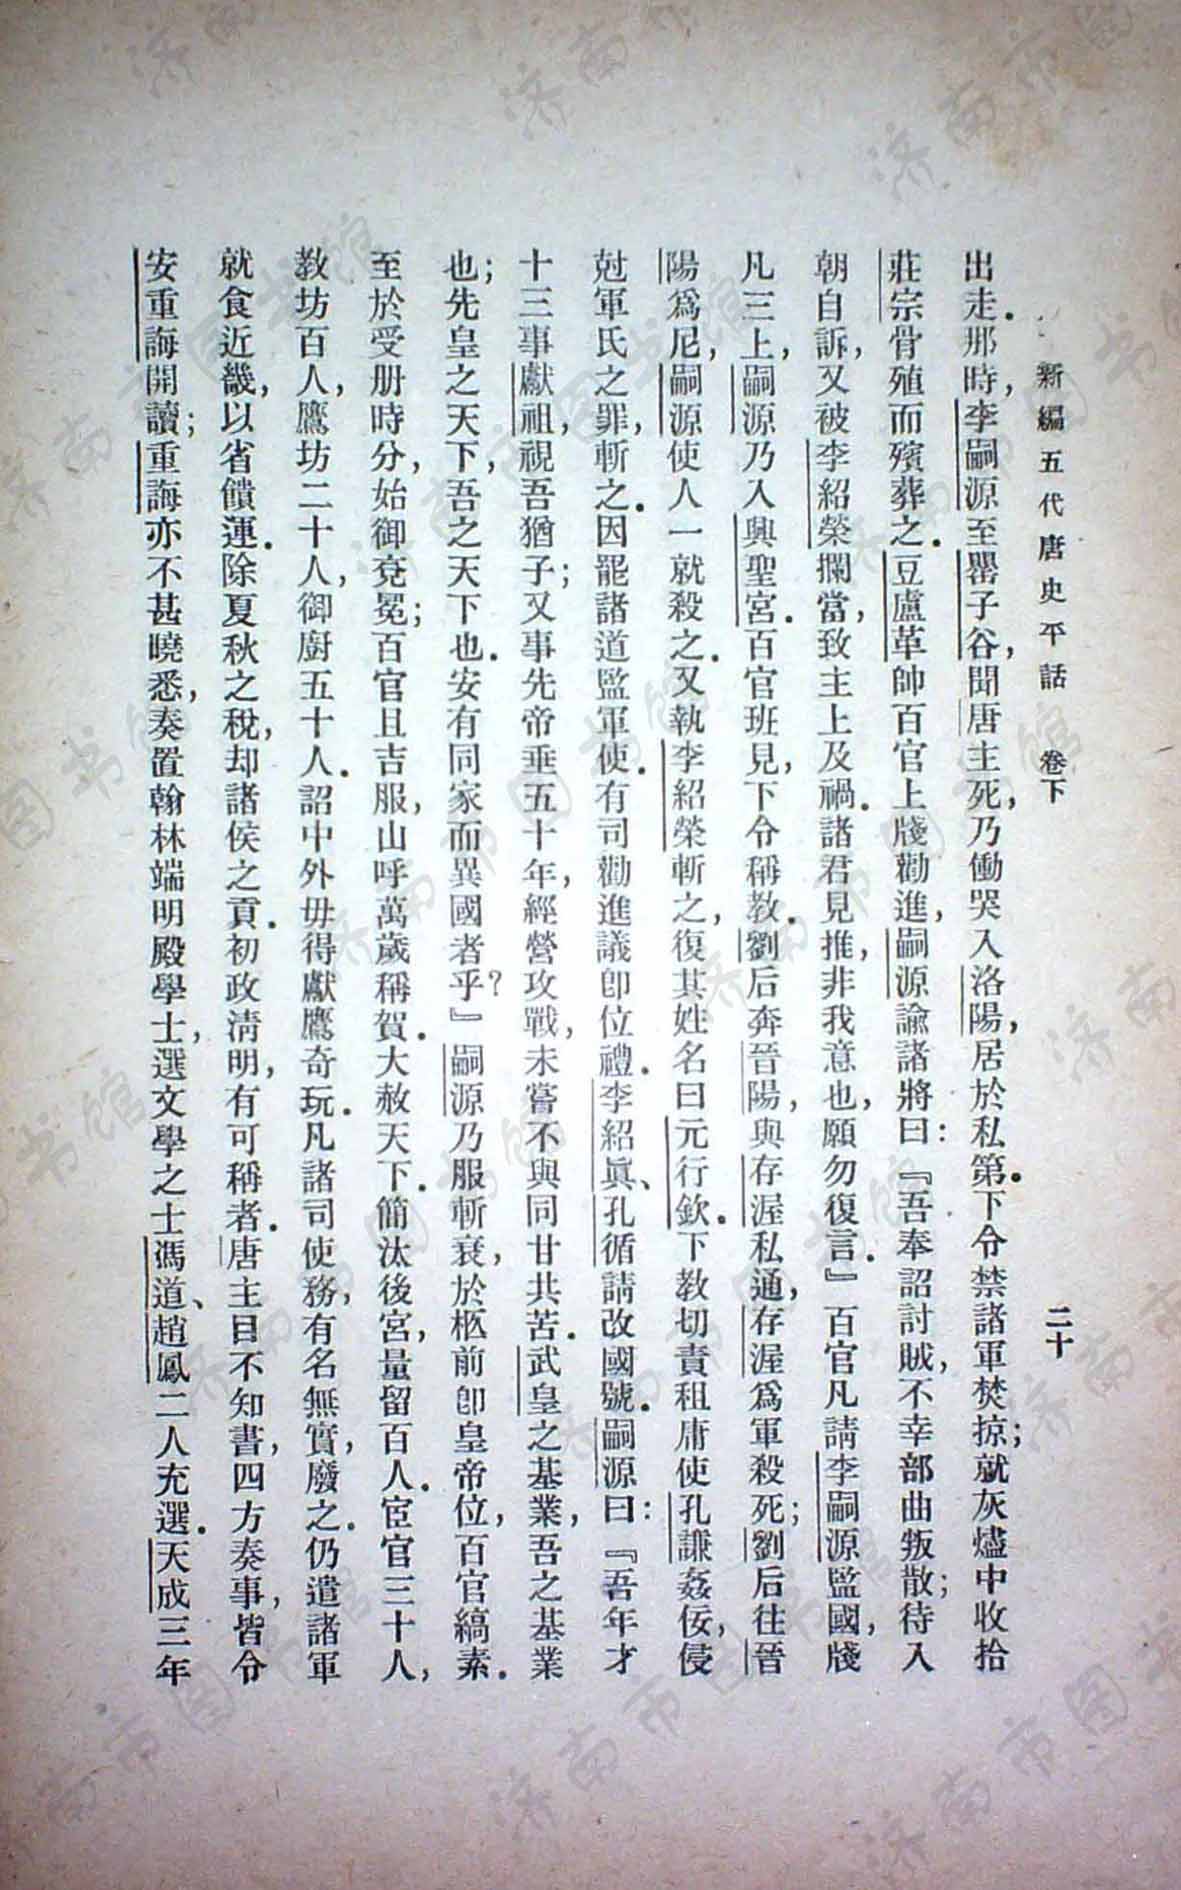 新編五代唐史平話　卷下　二十
出走．那時，李嗣源至罌子谷，聞唐主死，乃慟哭入洛陽，居於私第．下令禁諸軍焚掠；就灰燼中收拾
莊宗骨殖而殯葬之．豆盧革帥百官上牋勸進，嗣源諭諸將曰：『吾奉詔討賊，不幸部曲叛散；待入
朝自訴，又被李紹榮攔當，致主上及禍．諸君見推，非我意也，願勿復言．』百官凡請李嗣源監國，牋
凡三上，嗣源乃入興聖宮．百官班見，下令稱教．劉后奔晉陽，與存渥私通，存渥爲軍殺死；劉后往晉
陽爲尼，嗣源使人一就殺之．又執李紹榮斬之，復其姓名曰元行欽．下教切責租庸使孔謙姦佞，侵
尅軍氏之罪，斬之．因罷諸道監軍使．有司勸進議卽位禮．李紹眞、孔循請改國號．嗣源曰：『吾年才
十三事獻祖，視吾猶子；又事先帝垂五十年，經營攻戰，未嘗不與同甘共苦．武皇之基業，吾之基業
也；先皇之天下，吾之天下也．安有同家而異國者乎？』嗣源乃服斬衰，於柩前卽皇帝位，百官縞素．
至於受册時分，始御袞冕；百官且吉服，山呼萬歲稱賀．大赦天下．簡汰後宮，量留百人．宦官三十人，
教坊百人，鷹坊二十人，御廚五十人．詔中外毋得獻鷹奇玩．凡諸司使務，有名無實，廢之．仍遣諸軍
就食近畿，以省饋運．除夏秋之稅，却諸侯之貢．初政淸明，有可稱者．唐主目不知書，四方奏事，皆令
安重誨開讀；重誨亦不甚曉悉，奏置翰林端明殿學士，選文學之士馮道、趙鳳二人充選．天成三年
济南市图书馆